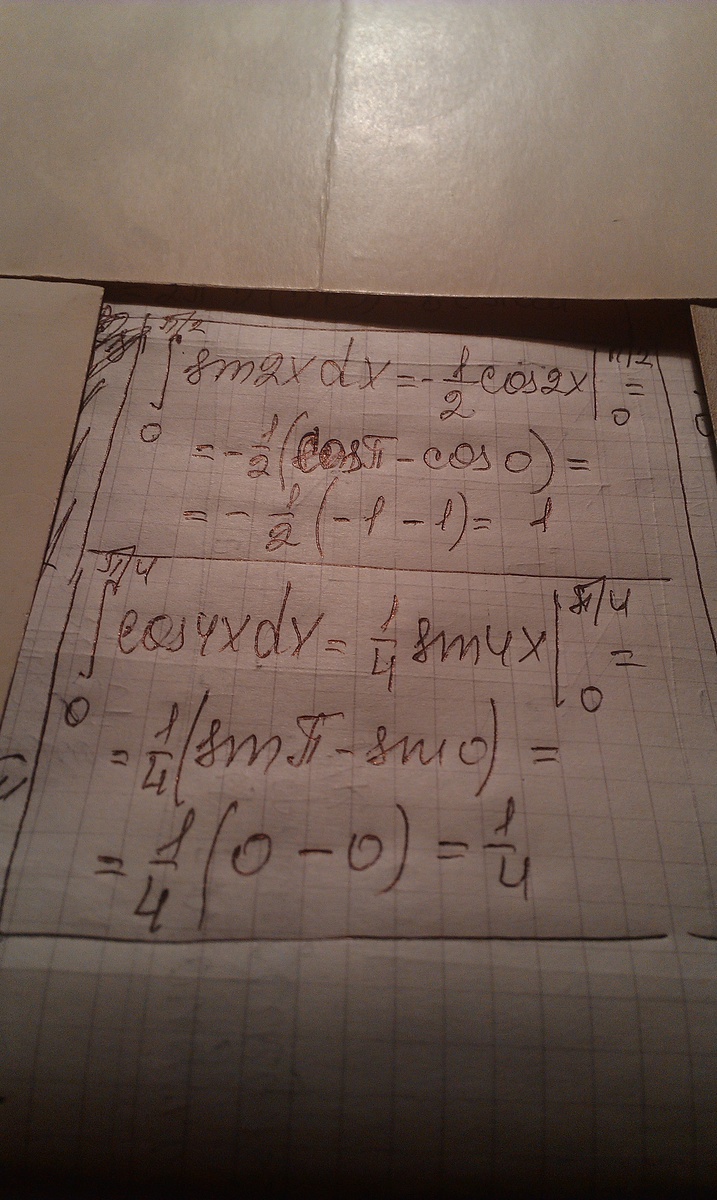 ∫₀^π/2 sin2xdx = -1/2 cos2x |₀^π/2 =
= -1/2 (cosπ - cos0) =
= -1/2 (-1 - 1) = 1
∫₀^π/4 cos4xdx = 1/4 sin4x |₀^π/4 =
= 1/4 (sinπ - sin0) =
= 1/4 (0 - 0) = 1/4